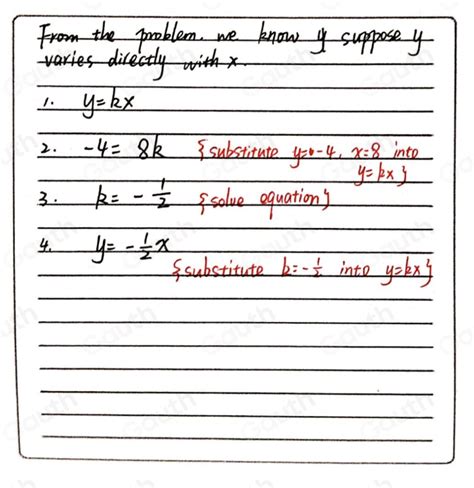 From the problem. we know y suppose y
varies directly with x.
1. y=kx
2. -4= 8k {substitute y=-4, x=8 into
y=kx}
3. k= -1/2 {solve equation}
4. y= -1/2x
{substitute k=-1/2 into y=kx}